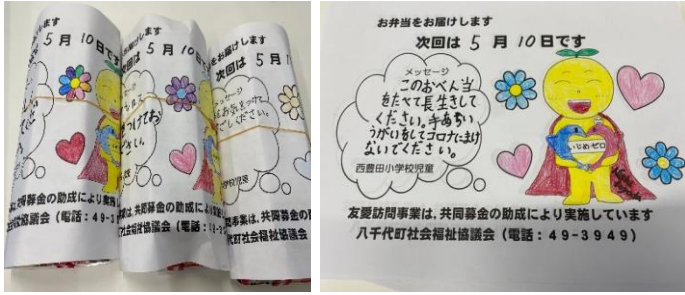 します
5月10日です
お届けします
5月10日です
お届けします
次回は5月1
メッセージ
メッセージ
をお気をつけて
ください。
さい。
西豊田小学校児童
共同募金の助成により実施
会福祉協議会(電話:49-3
共同募金の助成により
社会福祉協議会(電
友愛訪問事業は、共同募金の
八千代町社会福祉協議会
お弁当をお届けします
次回は5月10日です
メッセージ
このおべん当
をたべて長生きして
ください。手あらい
うがいをしてコロナにまけ
ないでください。
西豊田小学校児童
いじめゼロ
友愛訪問事業は、共同募金の助成により実施しています
八千代町社会福祉協議会(電話:49-3949)